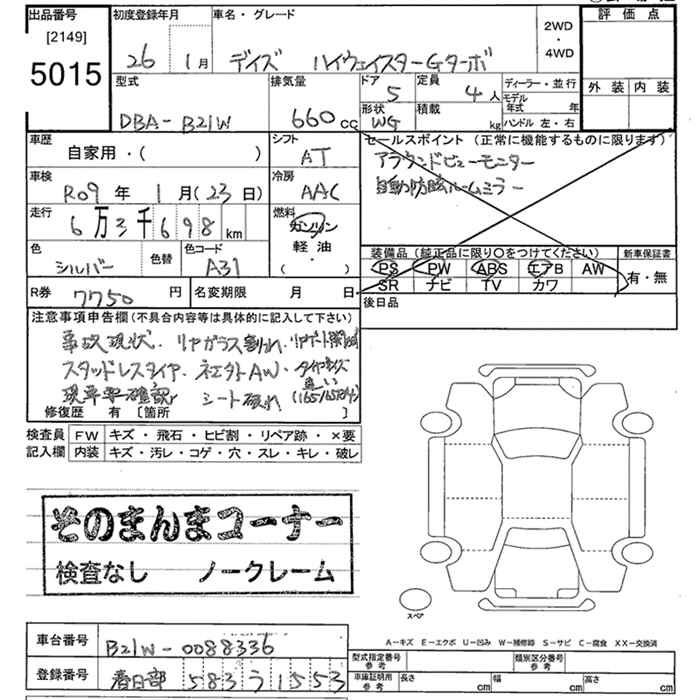 出品番号 初度登録年月 車名・グレード 2WD ・ 4WD 評価点
[2149]
5015 26 1月 デイズ ハイウェイスターGターボ
型式 排気量 ドア 定員 ディーラー・並行 外装 内装
DBA-B21W 660cc 5 4人 モデル年式 年
形状 積載 ハンドル 左・右
WG kg
車歴 シフト セールスポイント (正常に機能するものに限ります)
自家用・( ) AT アラウンドビューモニター
車検 冷房 自動防眩ルームミラー
R09年 1月(23日) AAC
走行 燃料
6万3千698km ガソリン
軽油
・( )
色 色替 色コード 装備品(純正品に限り○をつけてください) 新車保証書
シルバー A31 PS PW ABS エアB AW 有・無
SR ナビ TV カワ
R券 7750円 名変期限 月 日 後日品
注意事項申告欄(不具合内容等は具体的に記入して下さい)
事故現状. リヤガラス割れ.
スタッドレスタイヤ. 社外AW. タイヤサイズ違い
現車要確認 シート破れ
修復歴 有[箇所 ]
検査員 FW キズ・飛石・ヒビ割・リペア跡・×要
記入欄 内装 キズ・汚レ・コゲ・穴・スレ・キレ・破レ
そのまんまコーナー
検査なし ノークレーム
スペア
A-キズ E-エクボ U-凹み W-補修跡 S-サビ C-腐食 XX-交換済
車台番号 B21W-0088336
型式指定番号 参考 類別区分番号 参考
登録番号 春日部 583 う 1553
車庫証明用 参考 長さ cm 幅 cm 高さ cm